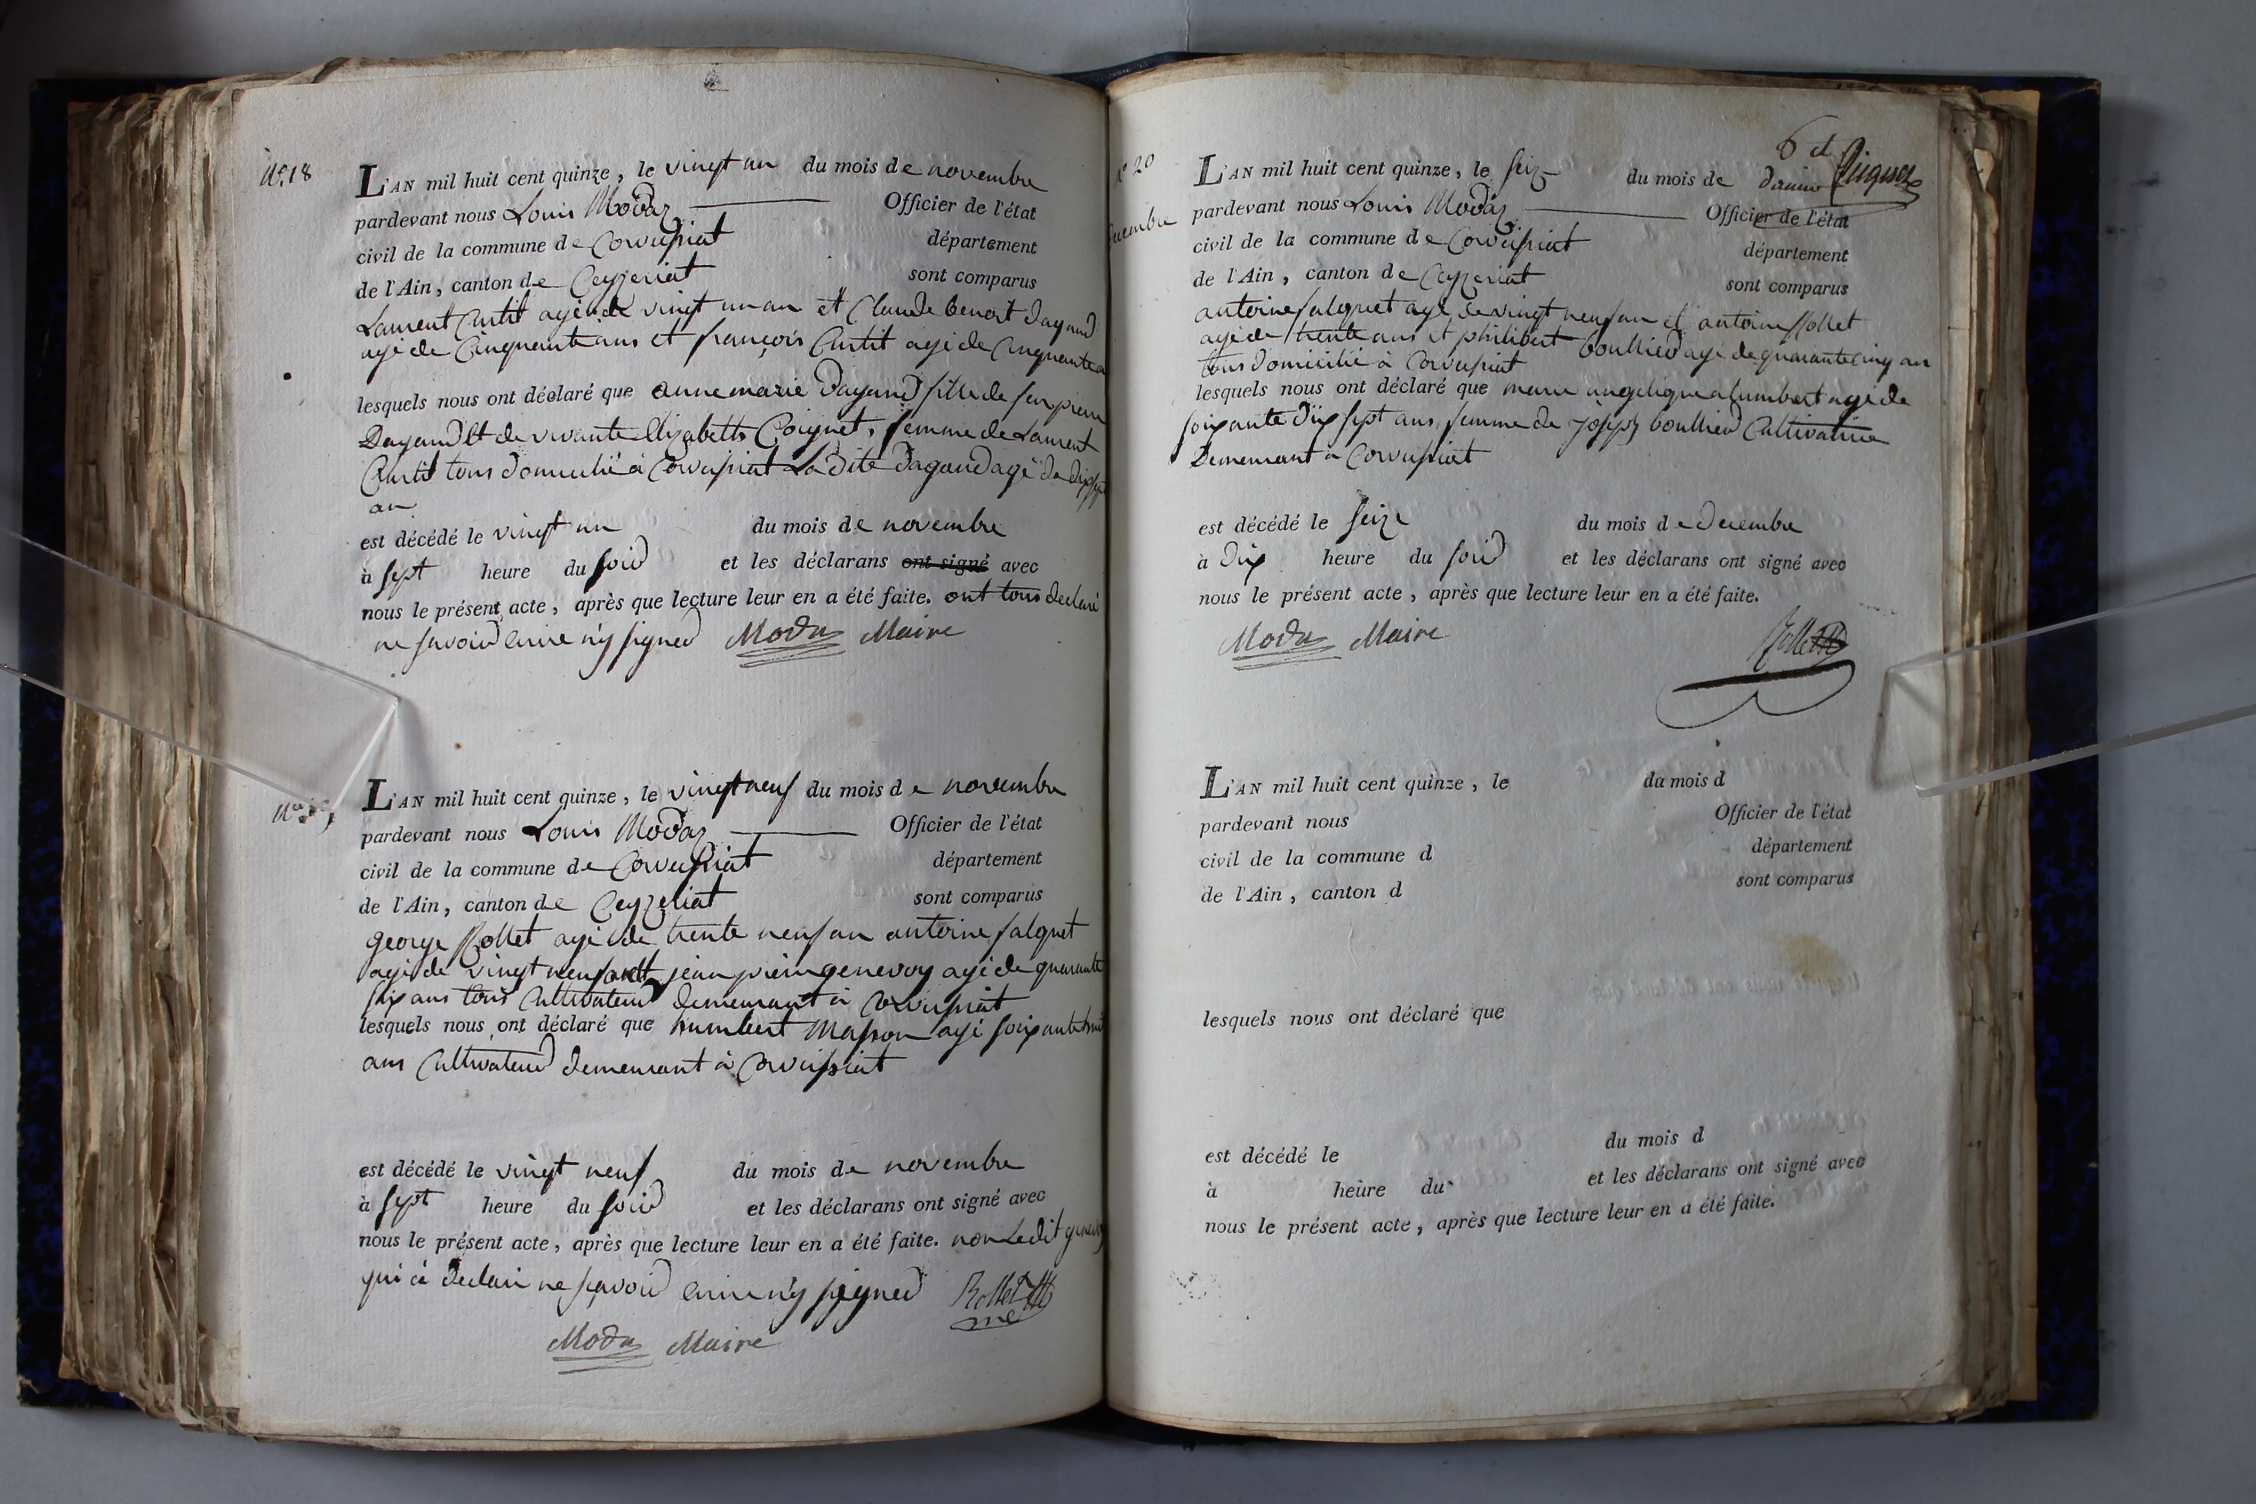 N° 18
L'AN mil huit cent quinze, le vingt un du mois de novembre
pardevant nous Louis Modas Officier de l'état
civil de la commune de Corveissiat département
de l'Ain, canton de Ceyzeriat sont comparus
Laurent Curtit agé de vingt un an et Claude benoit dagand
agé de Cinquante ans et françois Curtit agé de Cinquante
lesquels nous ont déclaré que anne marie dagand fille de feu pierre
Dagand et de vivante Elizabeth Coignet, femme de Laurent
Curtit tous domicilié à Corveissiat La dite dagand agé de dix sept
an
est décédé le vingt un du mois de novembre
à sept heure du soir et les déclarans ont signé avec
nous le présent acte, après que lecture leur en a été faite. ont tous declaré
ne savoir écrire n'y signer Modas Maire
L'AN mil huit cent quinze, le vingt neuf du mois de novembre
pardevant nous Louis Modas Officier de l'état
civil de la commune de Corveissiat département
de l'Ain, canton de Ceyzeriat sont comparus
george Rollet agé de trente neuf an antoine falquet
agé de vingt neuf jean pierre genevoy agé de quarante
six ans tous Cultivateur demeurant à Corveissiat
lesquels nous ont déclaré que humbert Masson agé soixante
ans Cultivateur demeurant à Corveissiat
est décédé le vingt neuf du mois de novembre
à sept heure du soir et les déclarans ont signé avec
nous le présent acte, après que lecture leur en a été faite. non Ledit genevoy
qui à declaré ne sçavoir écrire n'y signer Rollet
Modas Maire
6 et
dernier
N° 20
L'AN mil huit cent quinze, le seize du mois de
pardevant nous Louis Modas Officier de l'état
civil de la commune de Corveissiat département
de l'Ain, canton de Ceyzeriat sont comparus
antoine falquet agé de vingt neuf an et antoine Rollet
agé de trente ans et philibert boullier agé de quarante cinq an
tous domicilié à Corveissiat
lesquels nous ont déclaré que marie angelique alumbert agé de
soixante dix sept ans femme de joseph boullier Cultivatrice
Demeurant à Corveissiat
est décédé le seize du mois de decembre
à dix heure du soir et les déclarans ont signé avec
nous le présent acte, après que lecture leur en a été faite.
Modas Maire Rollet
L'AN mil huit cent quinze, le du mois d
pardevant nous Officier de l'état
civil de la commune d département
de l'Ain, canton d sont comparus
lesquels nous ont déclaré que
est décédé le du mois d
à heure du et les déclarans ont signé avec
nous le présent acte, après que lecture leur en a été faite.